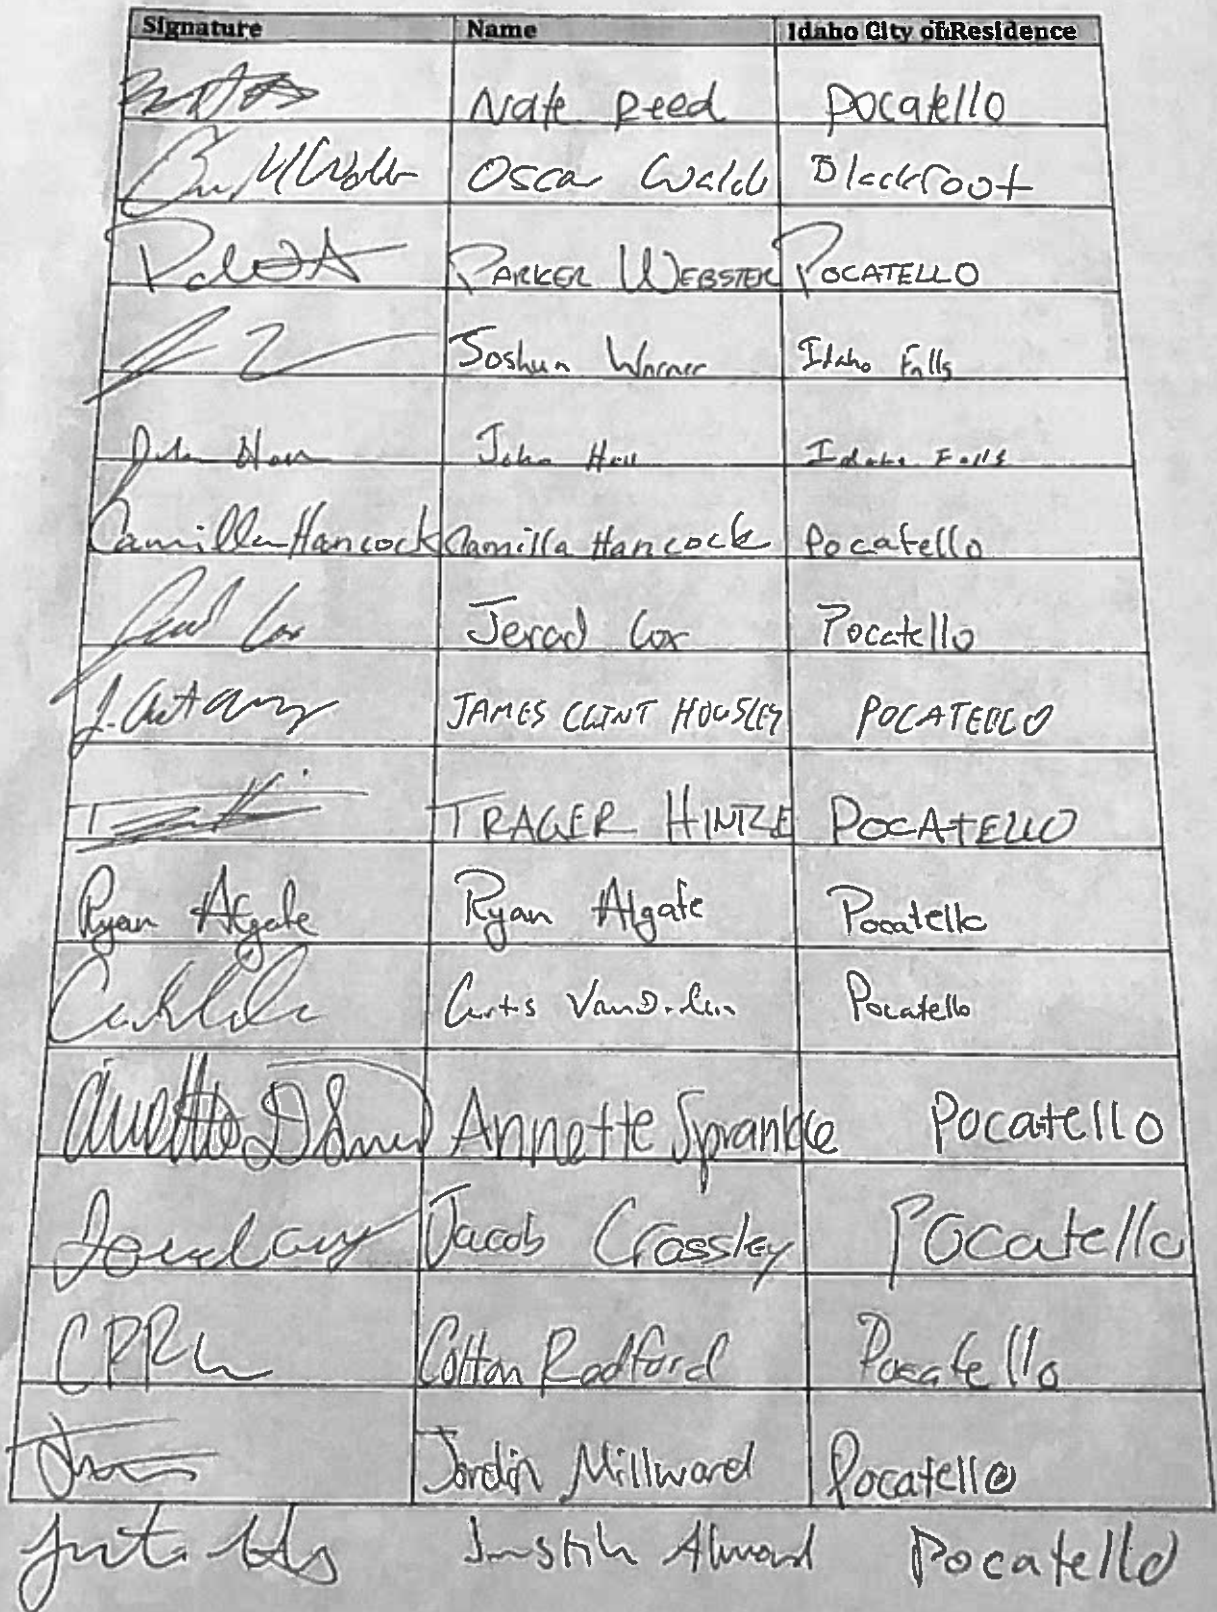 Signature Name Idaho City of Residence
Nate Reed Pocatello
Oscar Blackfoot
PARKER WEBSTER POCATELLO
Joshua Warner Idaho Falls
John Idaho Falls
Camilla Hancock Camilla Hancock Pocatello
Jerad Cox Jerad Cox Pocatello
JAMES CLINT HOUSLEY POCATELLO
TRAGER HINTZE POCATELLO
Ryan Algate Ryan Algate Pocatello
Curtis Pocatello
Annette Sprankle Pocatello
Jacob Crossley Pocatello
Colton Radford Pocatello
Jordin Millward Pocatello
Justin Pocatello